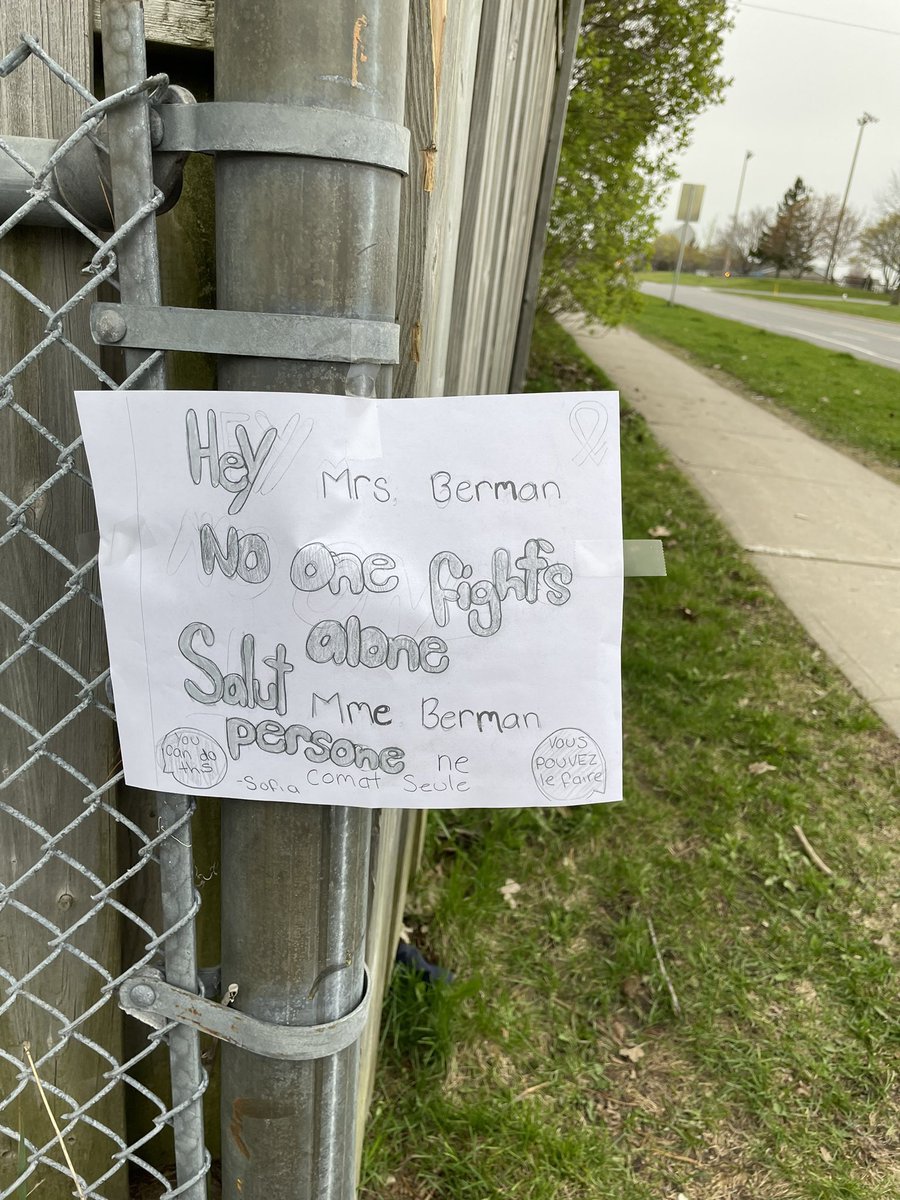 Hey Mrs. Berman
No one fights
alone
Salut Mme Berman
persone ne
Comat Seule
-Sofia
You
Can do
this
Vous
POUVEZ
le faire